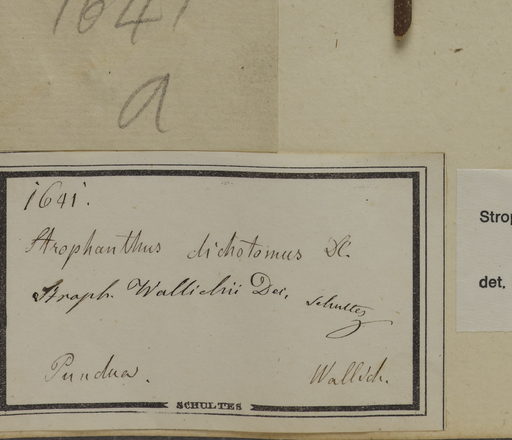 1641
a
1641.
Strophanthus dichotomus DC.
Stroph. Wallichii Dec. Schultes
Pundua. Wallich.
SCHULTES
Strop
det.